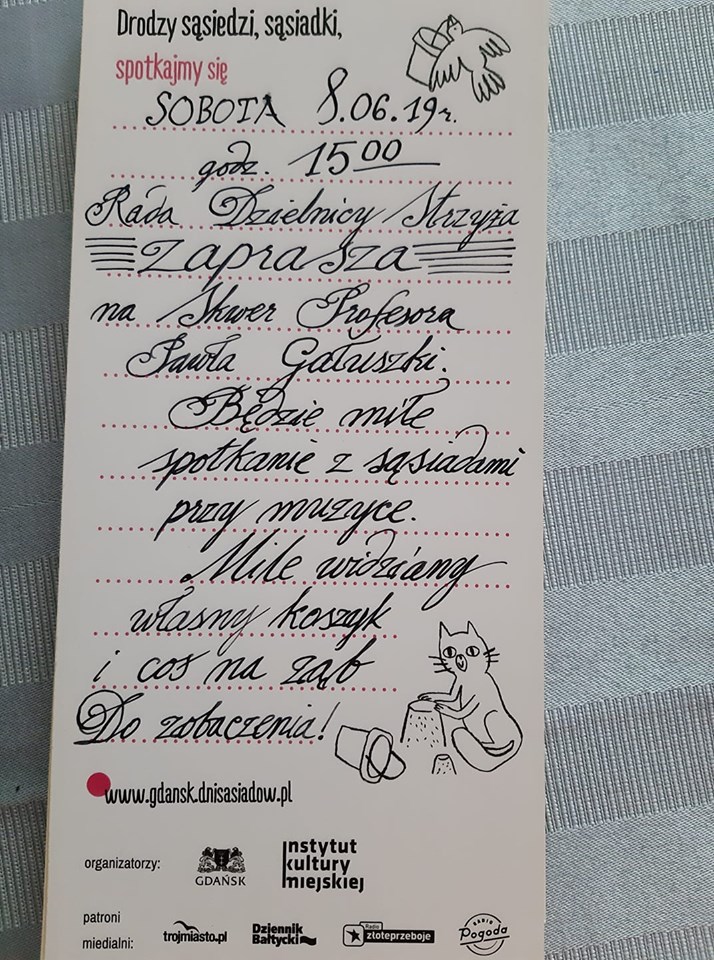 Drodzy sąsiedzi, sąsiadki,
spotkajmy się
SOBOTA 8.06.19r.
godz. 15⁰⁰
Rada Dzielnicy Strzyża
zaprasza
na Skwer Profesora
Pawła Gałuszki.
Będzie miłe
spotkanie z sąsiadami
przy muzyce.
Mile widziany
własny koszyk
i coś na ząb
Do zobaczenia!
www.gdansk.dnisasiadow.pl
organizatorzy:
GDAŃSK
Instytut
kultury
miejskiej
patroni
medialni:
trojmiasto.pl
Dziennik
Bałtycki
Radio
złoteprzeboje
RADIO
Pogoda